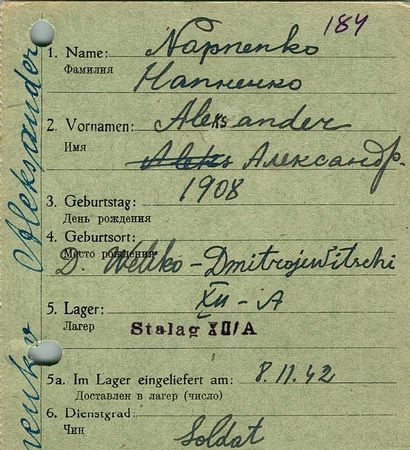 184
1. Name: Napnenko
Фамилия Напненко
2. Vornamen: Aleksander
Имя Aleks Александр.
3. Geburtstag: 1908
День рождения
4. Geburtsort:
Место рождения
D. Weliko-Dmitrojewitschi
5. Lager: XII-A
Лагер Stalag XII/A
5a. Im Lager eingeliefert am: 8.11.42
Доставлен в лагер (число)
6. Dienstgrad:
Чин Soldat
Aleksander